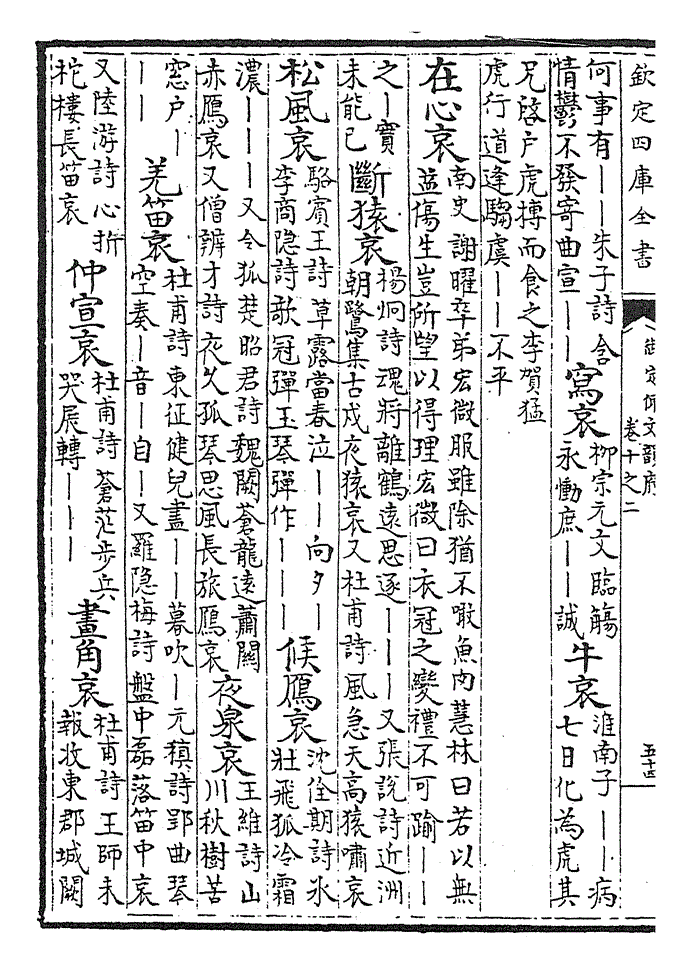 欽定四庫全書
御定佩文韻府
卷十之二
五十四
何事有——朱子詩含
情鬱不發寄曲宣——
寫哀
柳宗元文臨觴
永慟庶——誠
牛哀
淮南子——病
七日化為虎其
兄啓户虎搏而食之李賀猛
虎行道逢騶虞——不平
在心哀
南史謝曜卒弟宏微服雖除猶不噉魚肉慧林曰若以無
益傷生豈所望以得理宏微曰衣冠之變禮不可踰——
之—實
未能已
斷猿哀
楊炯詩魂將離鶴遠思逐———又張說詩近洲
朝鷺集古戍夜猿哀又杜甫詩風急天高猿嘯哀
松風哀
駱賓王詩草露當春泣——向夕—
李商隐詩歌冠彈玉琴彈作———
候鴈哀
沈佺期詩氷
壯飛狐冷霜
濃———又令狐楚昭君詩魏闕蒼龍遠蕭關
赤鴈哀又僧辨才詩夜久孤琴思風長旅鴈哀
夜泉哀
王維詩山
川秋樹苦
窓户—
——
羌笛哀
杜甫詩東征健兒盡——暮吹—元稹詩郢曲琴
空奏—音—自—又羅隐梅詩盤中磊落笛中哀
又陸游詩心折
柁樓長笛哀
仲宣哀
杜甫詩蒼茫步兵
哭展轉———
畫角哀
杜甫詩王師未
報收東郡城闕